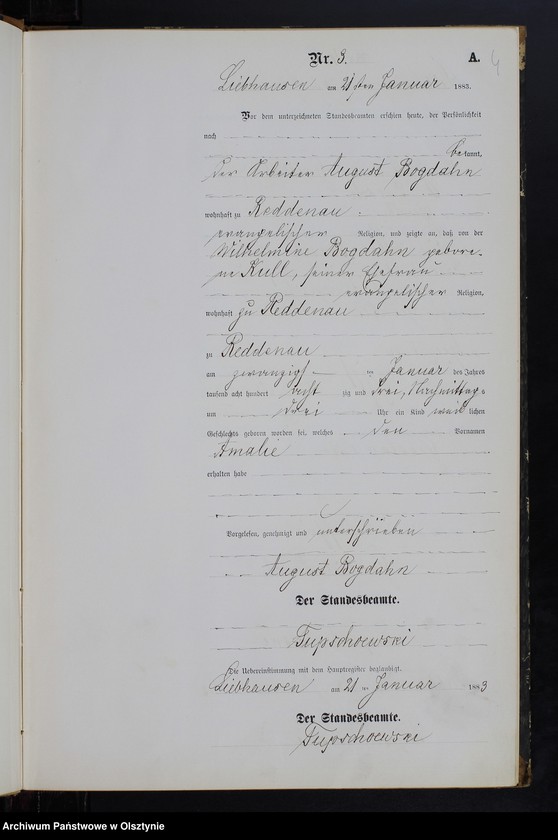 Nr. 3. A. 4
Liebhausen am 21sten Januar 1883.
Vor dem unterzeichneten Standesbeamten erschien heute, der Persönlichkeit
nach
bekannt,
der Arbeiter August Bogdahn
wohnhaft zu Reddenau
evangelischer Religion, und zeigte an, daß von der
Wilhelmine Bogdahn gebore-
ne Kull, seiner Ehefrau
evangelischer Religion,
wohnhaft zu Reddenau
zu Reddenau
am zwanzigsten Januar des Jahres
tausend acht hundert achtzig und drei, Nachmittags
um drei Uhr ein Kind weiblichen
Geschlechts geboren worden sei, welches den Vornamen
Amalie
erhalten habe
Vorgelesen, genehmigt und unterschrieben
August Bogdahn
Der Standesbeamte.
Die Uebereinstimmung mit dem Hauptregister beglaubigt.
Liebhausen am 21 ten Januar 1883
Der Standesbeamte.
Archiwum Państwowe w Olsztynie